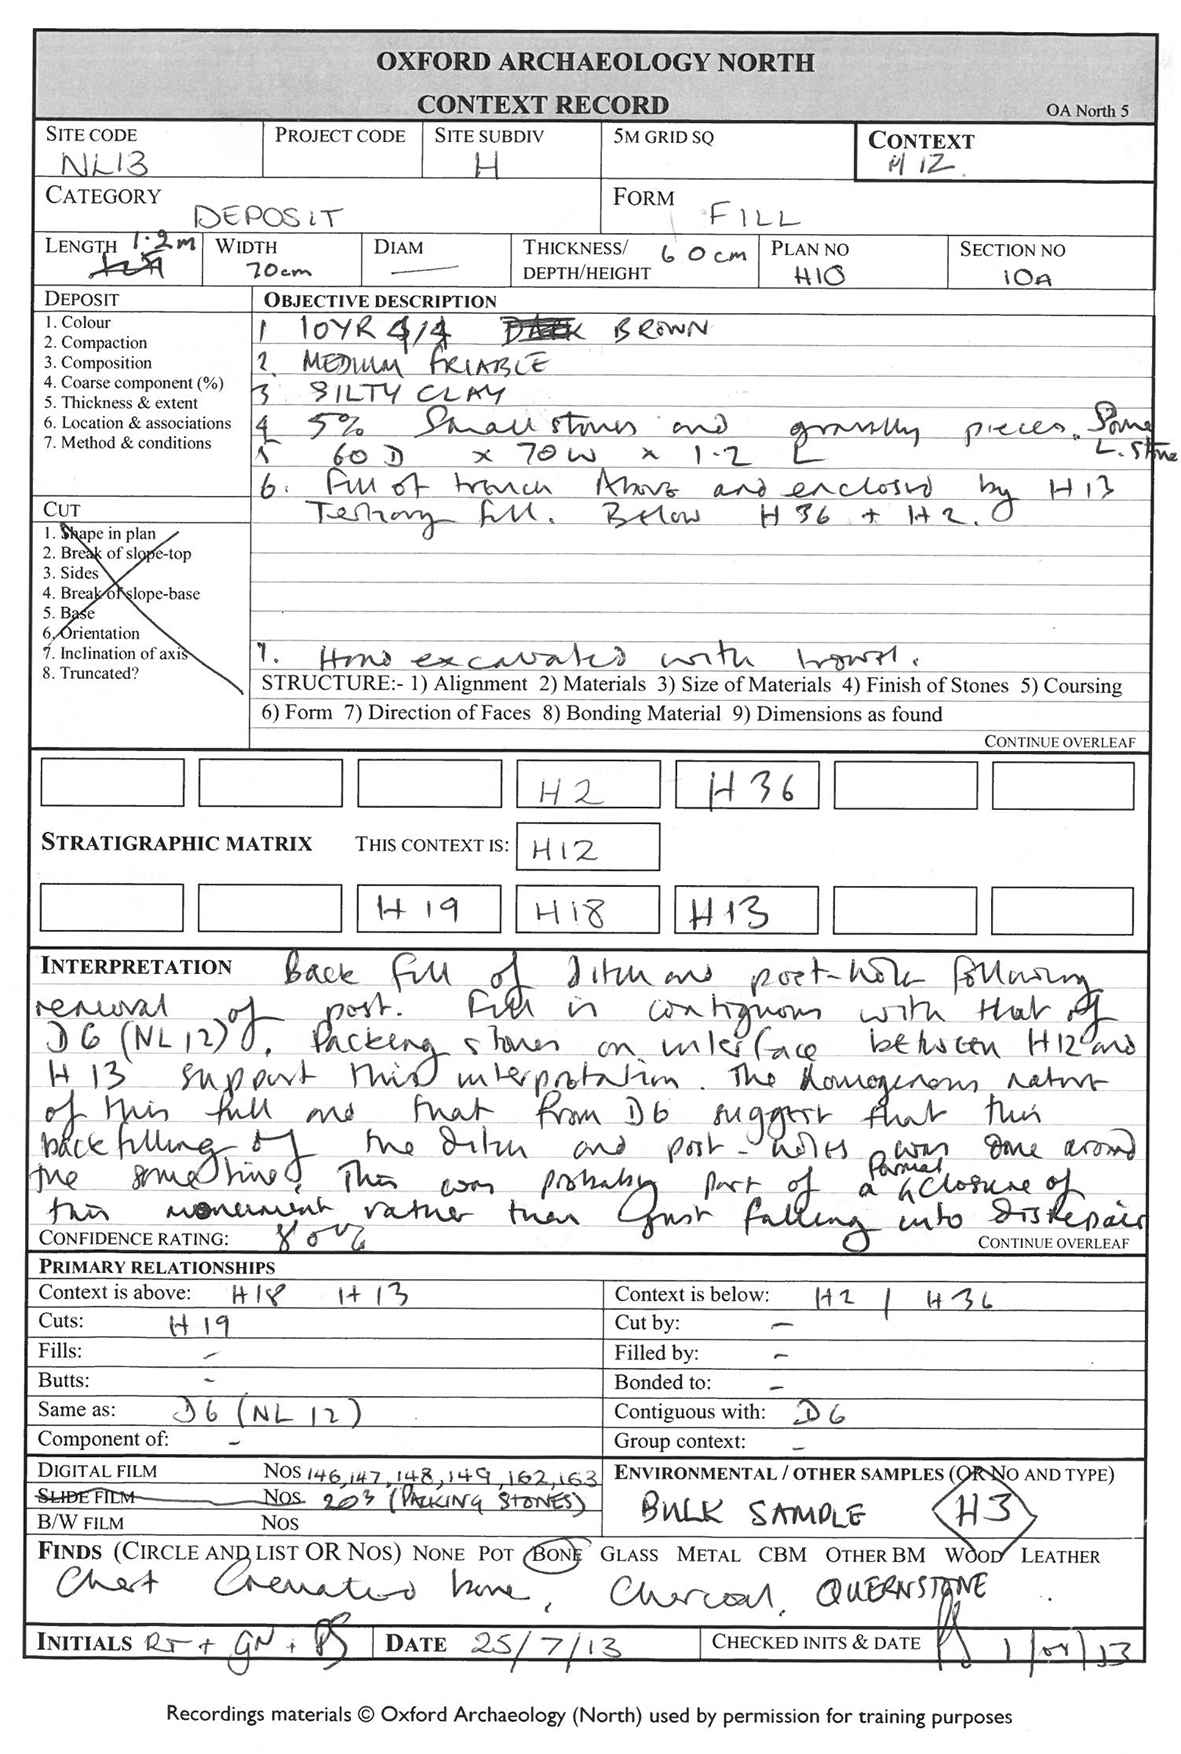 OXFORD ARCHAEOLOGY NORTH
CONTEXT RECORD
OA North 5
SITE CODE NL13
PROJECT CODE
SITE SUBDIV H
5M GRID SQ
CONTEXT H 12
CATEGORY DEPOSIT
FORM FILL
LENGTH 1.2m
WIDTH 70cm
DIAM —
THICKNESS/DEPTH/HEIGHT 60cm
PLAN NO H10
SECTION NO 10A
DEPOSIT
1. Colour
2. Compaction
3. Composition
4. Coarse component (%)
5. Thickness & extent
6. Location & associations
7. Method & conditions
OBJECTIVE DESCRIPTION
1 10YR 4/4 DARK BROWN
2. MEDIUM FRIABLE
3 SILTY CLAY
4 5% Small stones and gravelly pieces. Some L. stone
5 60 D x 70 W x 1.2 L
6. Fill of trench Above and enclosed by H13
Tertiary fill. Below H36 + H2.
7. Hand excavated with trowel.
CUT
1. Shape in plan
2. Break of slope-top
3. Sides
4. Break of slope-base
5. Base
6. Orientation
7. Inclination of axis
8. Truncated?
STRUCTURE:- 1) Alignment 2) Materials 3) Size of Materials 4) Finish of Stones 5) Coursing
6) Form 7) Direction of Faces 8) Bonding Material 9) Dimensions as found
CONTINUE OVERLEAF
H2 H36
STRATIGRAPHIC MATRIX THIS CONTEXT IS: H12
H19 H18 H13
INTERPRETATION Back fill of ditch and post-hole following
removal of post. Fill is contiguous with that of
D6 (NL12). Packing stones on interface between H12 and
H13 support this interpretation. The homogenous nature
of this fill and that from D6 suggest that this
backfilling of the ditch and post-holes was done around
the same time. This was probably part of a formal closure of
this monument rather than just falling into disrepair
CONFIDENCE RATING: 80%
CONTINUE OVERLEAF
PRIMARY RELATIONSHIPS
Context is above: H18 H13
Context is below: H2 / H36
Cuts: H19
Cut by: –
Fills: –
Filled by: –
Butts: –
Bonded to: –
Same as: D6 (NL12)
Contiguous with: D6
Component of: –
Group context: –
DIGITAL FILM NOS 146,147,148,149,162,163
SLIDE FILM NOS 203 (PACKING STONES)
B/W FILM NOS
ENVIRONMENTAL / OTHER SAMPLES (OR NO AND TYPE)
BULK SAMPLE H3
FINDS (CIRCLE AND LIST OR NOS) NONE POT BONE GLASS METAL CBM OTHER BM WOOD LEATHER
Chert Cremated bone, Charcoal, QUERNSTONE.
INITIALS RT + GN +
DATE 25/7/13
CHECKED INITS & DATE 1/08/13
Recordings materials © Oxford Archaeology (North) used by permission for training purposes